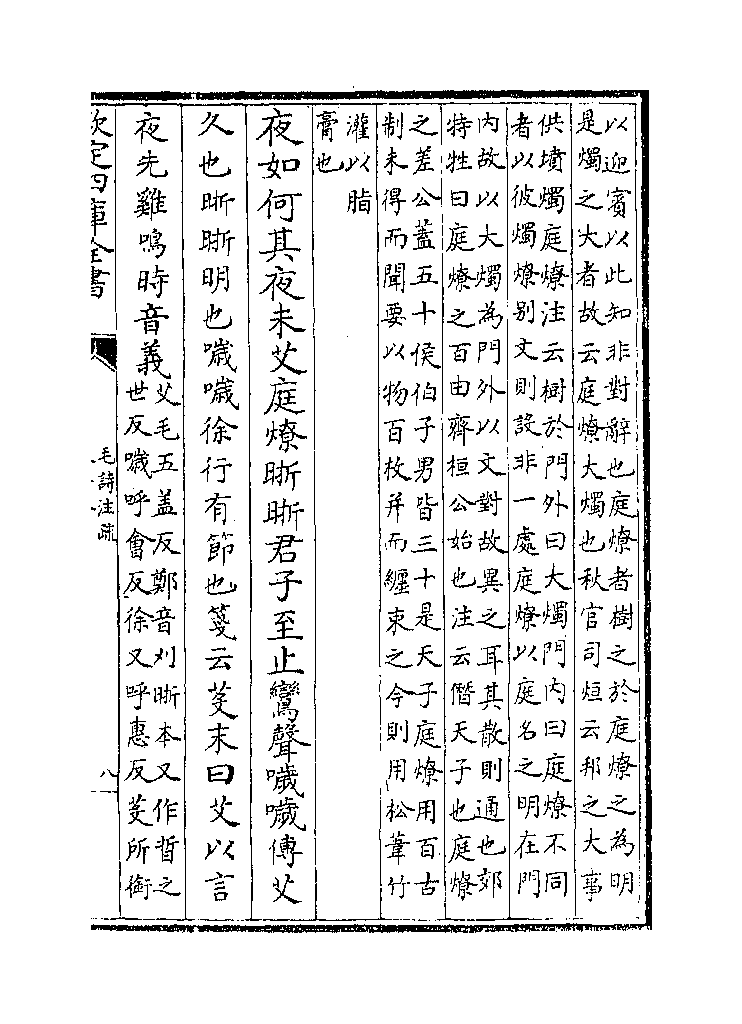 以迎賓以此知非對辭也庭燎者樹之於庭燎之為明
是燭之大者故云庭燎大燭也秋官司烜云邦之大事
供墳燭庭燎注云樹於門外曰大燭門內曰庭燎不同
者以彼燭燎别文則設非一處庭燎以庭名之明在門
內故以大燭為門外以文對故異之耳其散則通也郊
特牲曰庭燎之百由齊桓公始也注云僭天子也庭燎
之差公蓋五十侯伯子男皆三十是天子庭燎用百古
制未得而聞要以物百枚并而纏束之今則用松葦竹
灌以脂
膏也
夜如何其夜未艾庭燎晣晣君子至止鸞聲噦噦傳艾
久也晣晣明也噦噦徐行有節也箋云芟末曰艾以言
夜先雞鳴時音義
艾毛五盖反鄭音刈晣本又作晢之
世反噦呼會反徐又呼惠反芟所銜
欽定四庫全書
毛詩注疏
八